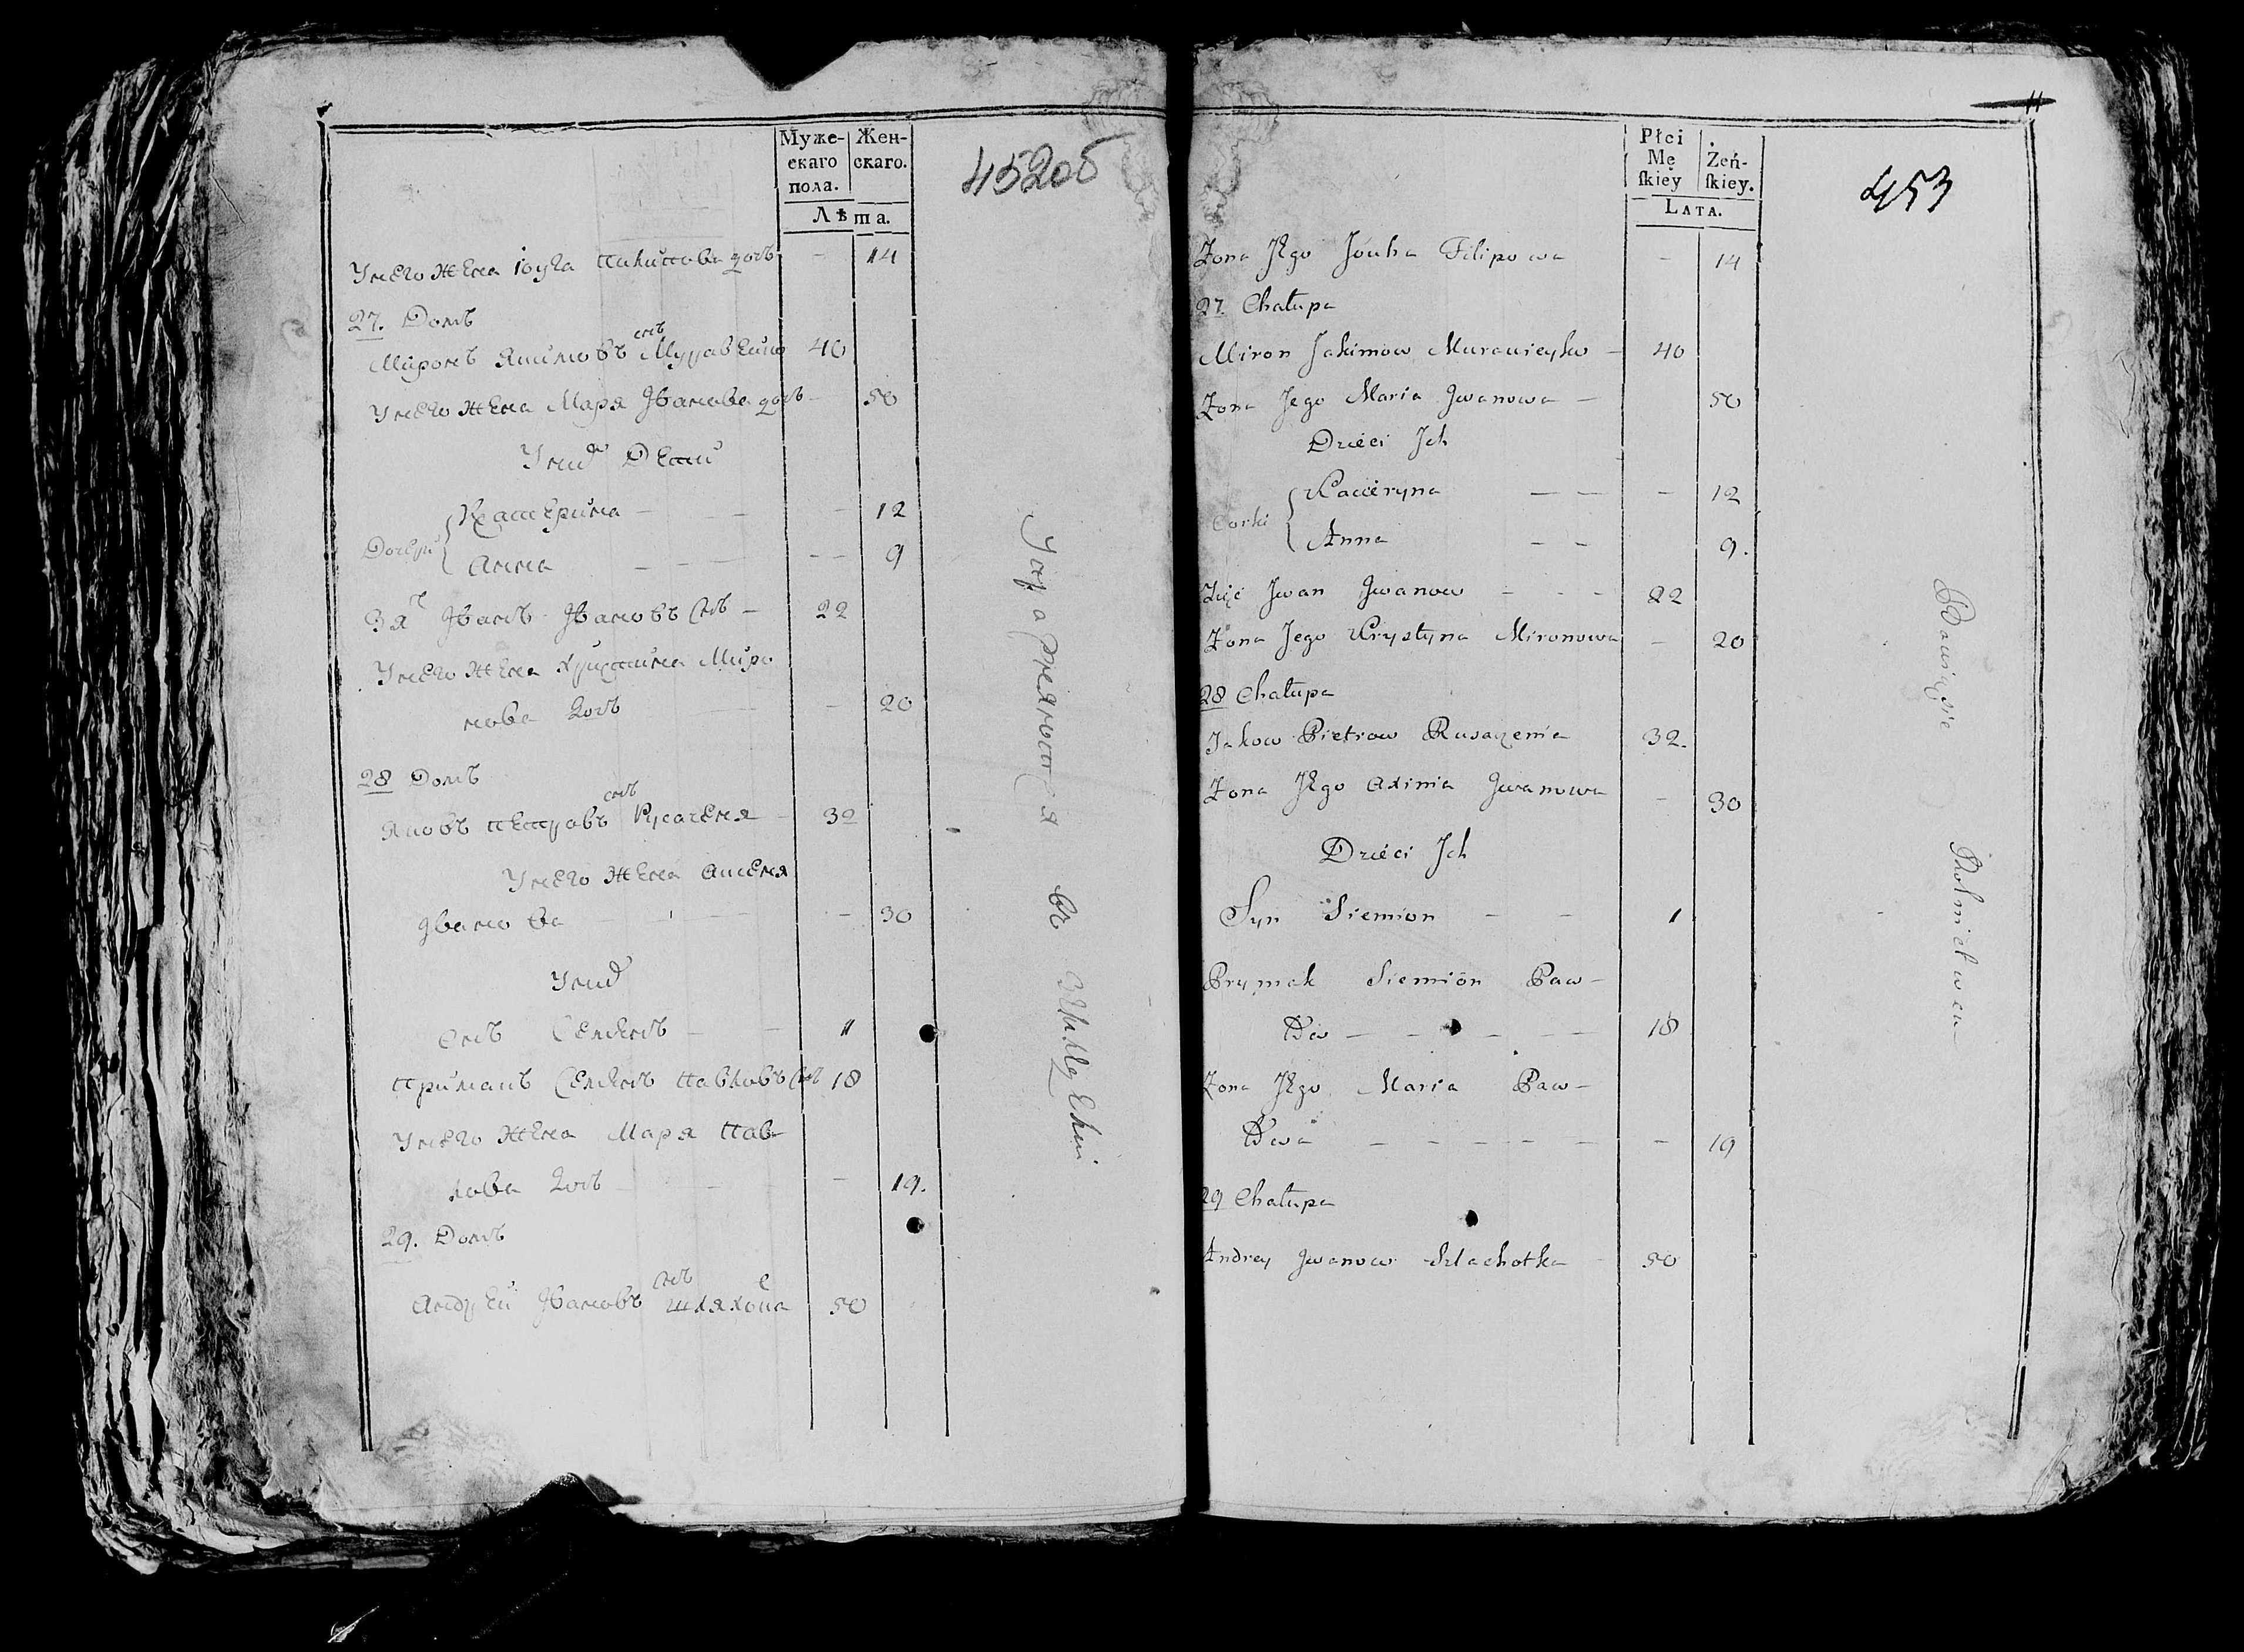 Муже-
скаго
пола.
Жен-
скаго.
Лѣта.
452об
У него жена Іоуга Пилипова дочь — 14
27. Домъ
Миронъ Якимовъ снъ Муравейко 40
У него жена Маря Иванова дочь — 50
У них Дети
Дочери
Катерина — — — — 12
Анна — — — — — 9
Зят Иванъ Ивановъ снъ — 22
У него жена Христина Миро
нова дочь — — 20
28 Домъ
Яковъ Петровъ снъ Русаченя — 32
У него жена Аксеня
Ивано ва — — — — 30
У них
Снъ Семіонъ — — 11
Примакъ Семіонъ Павловъ снъ 18
У него жена Маря Пав
лова дочь — — — 19.
29. Домъ
Андрей Ивановъ снъ Шляхотка 50
Упражняются въ Земледелии
11
Płci
Mę
ſkiey
Żeń-
ſkiey.
Lata.
453
Żona Jego Jouha Filipowa — 14
27. Chałupa
Miron Jakimow Murawieyko — 40
Żona Jego Maria Jwanowa — 50
Dzieci Jch
Corki
Kacieryna — — — 12
Anna — — 9.
Zięć Jwan Jwanow — — — 22
Żona Jego Krystyna Mironowa — 20
28 Chałupa
Jakow Pietrow Rusaczenia 32.
Żona Jego Axinia Jwanowa — 30
Dzieci Jch
Syn Siemion — — 1
Prymak Siemion Paw-
łow — — — — — 18
Żona Jego Maria Paw-
łowa — — — — — — 19
29 Chałupa
Andrey Jwanow Szlachotka — 50
Bawią się Rolnictwem